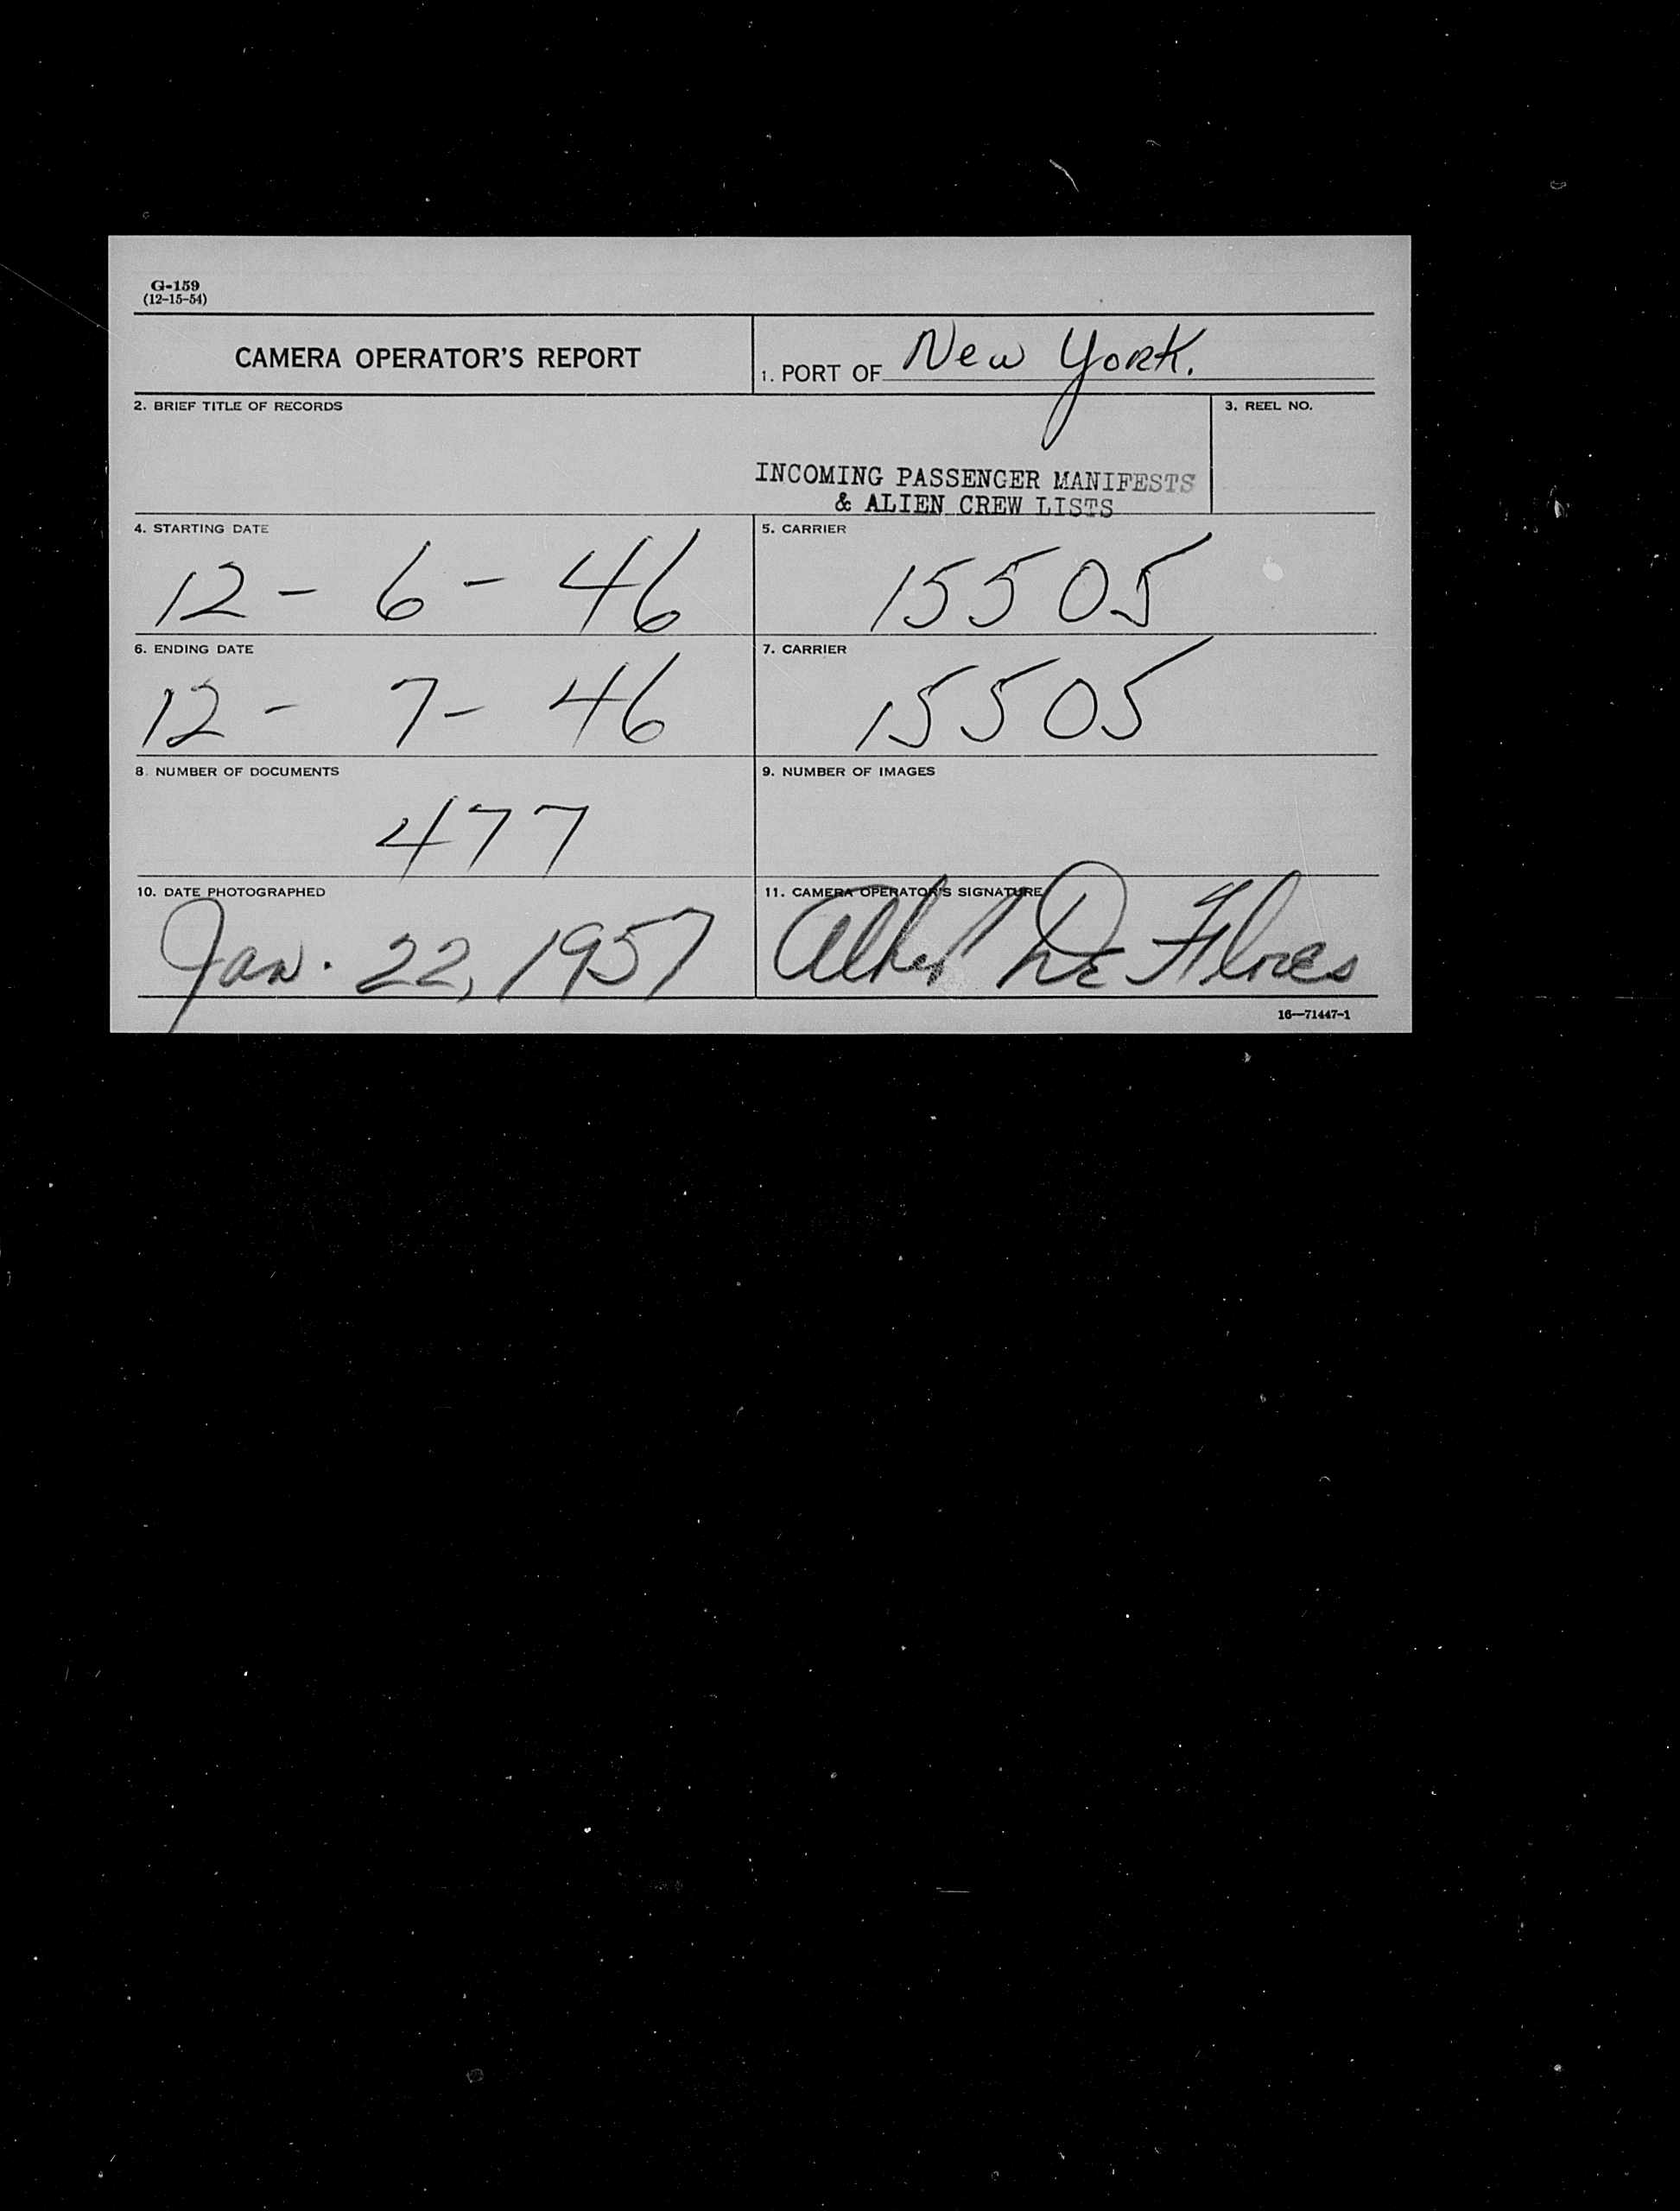 G-159
(12-15-54)
CAMERA OPERATOR'S REPORT
1. PORT OF New York.
2. BRIEF TITLE OF RECORDS
3. REEL NO.
INCOMING PASSENGER MANIFESTS
& ALIEN CREW LISTS
4. STARTING DATE
5. CARRIER
12 - 6 - 46
15505
6. ENDING DATE
7. CARRIER
12 - 7 - 46
15505
8. NUMBER OF DOCUMENTS
9. NUMBER OF IMAGES
477
10. DATE PHOTOGRAPHED
11. CAMERA OPERATOR'S SIGNATURE
Jan. 22, 1957
De Flores
16—71447-1